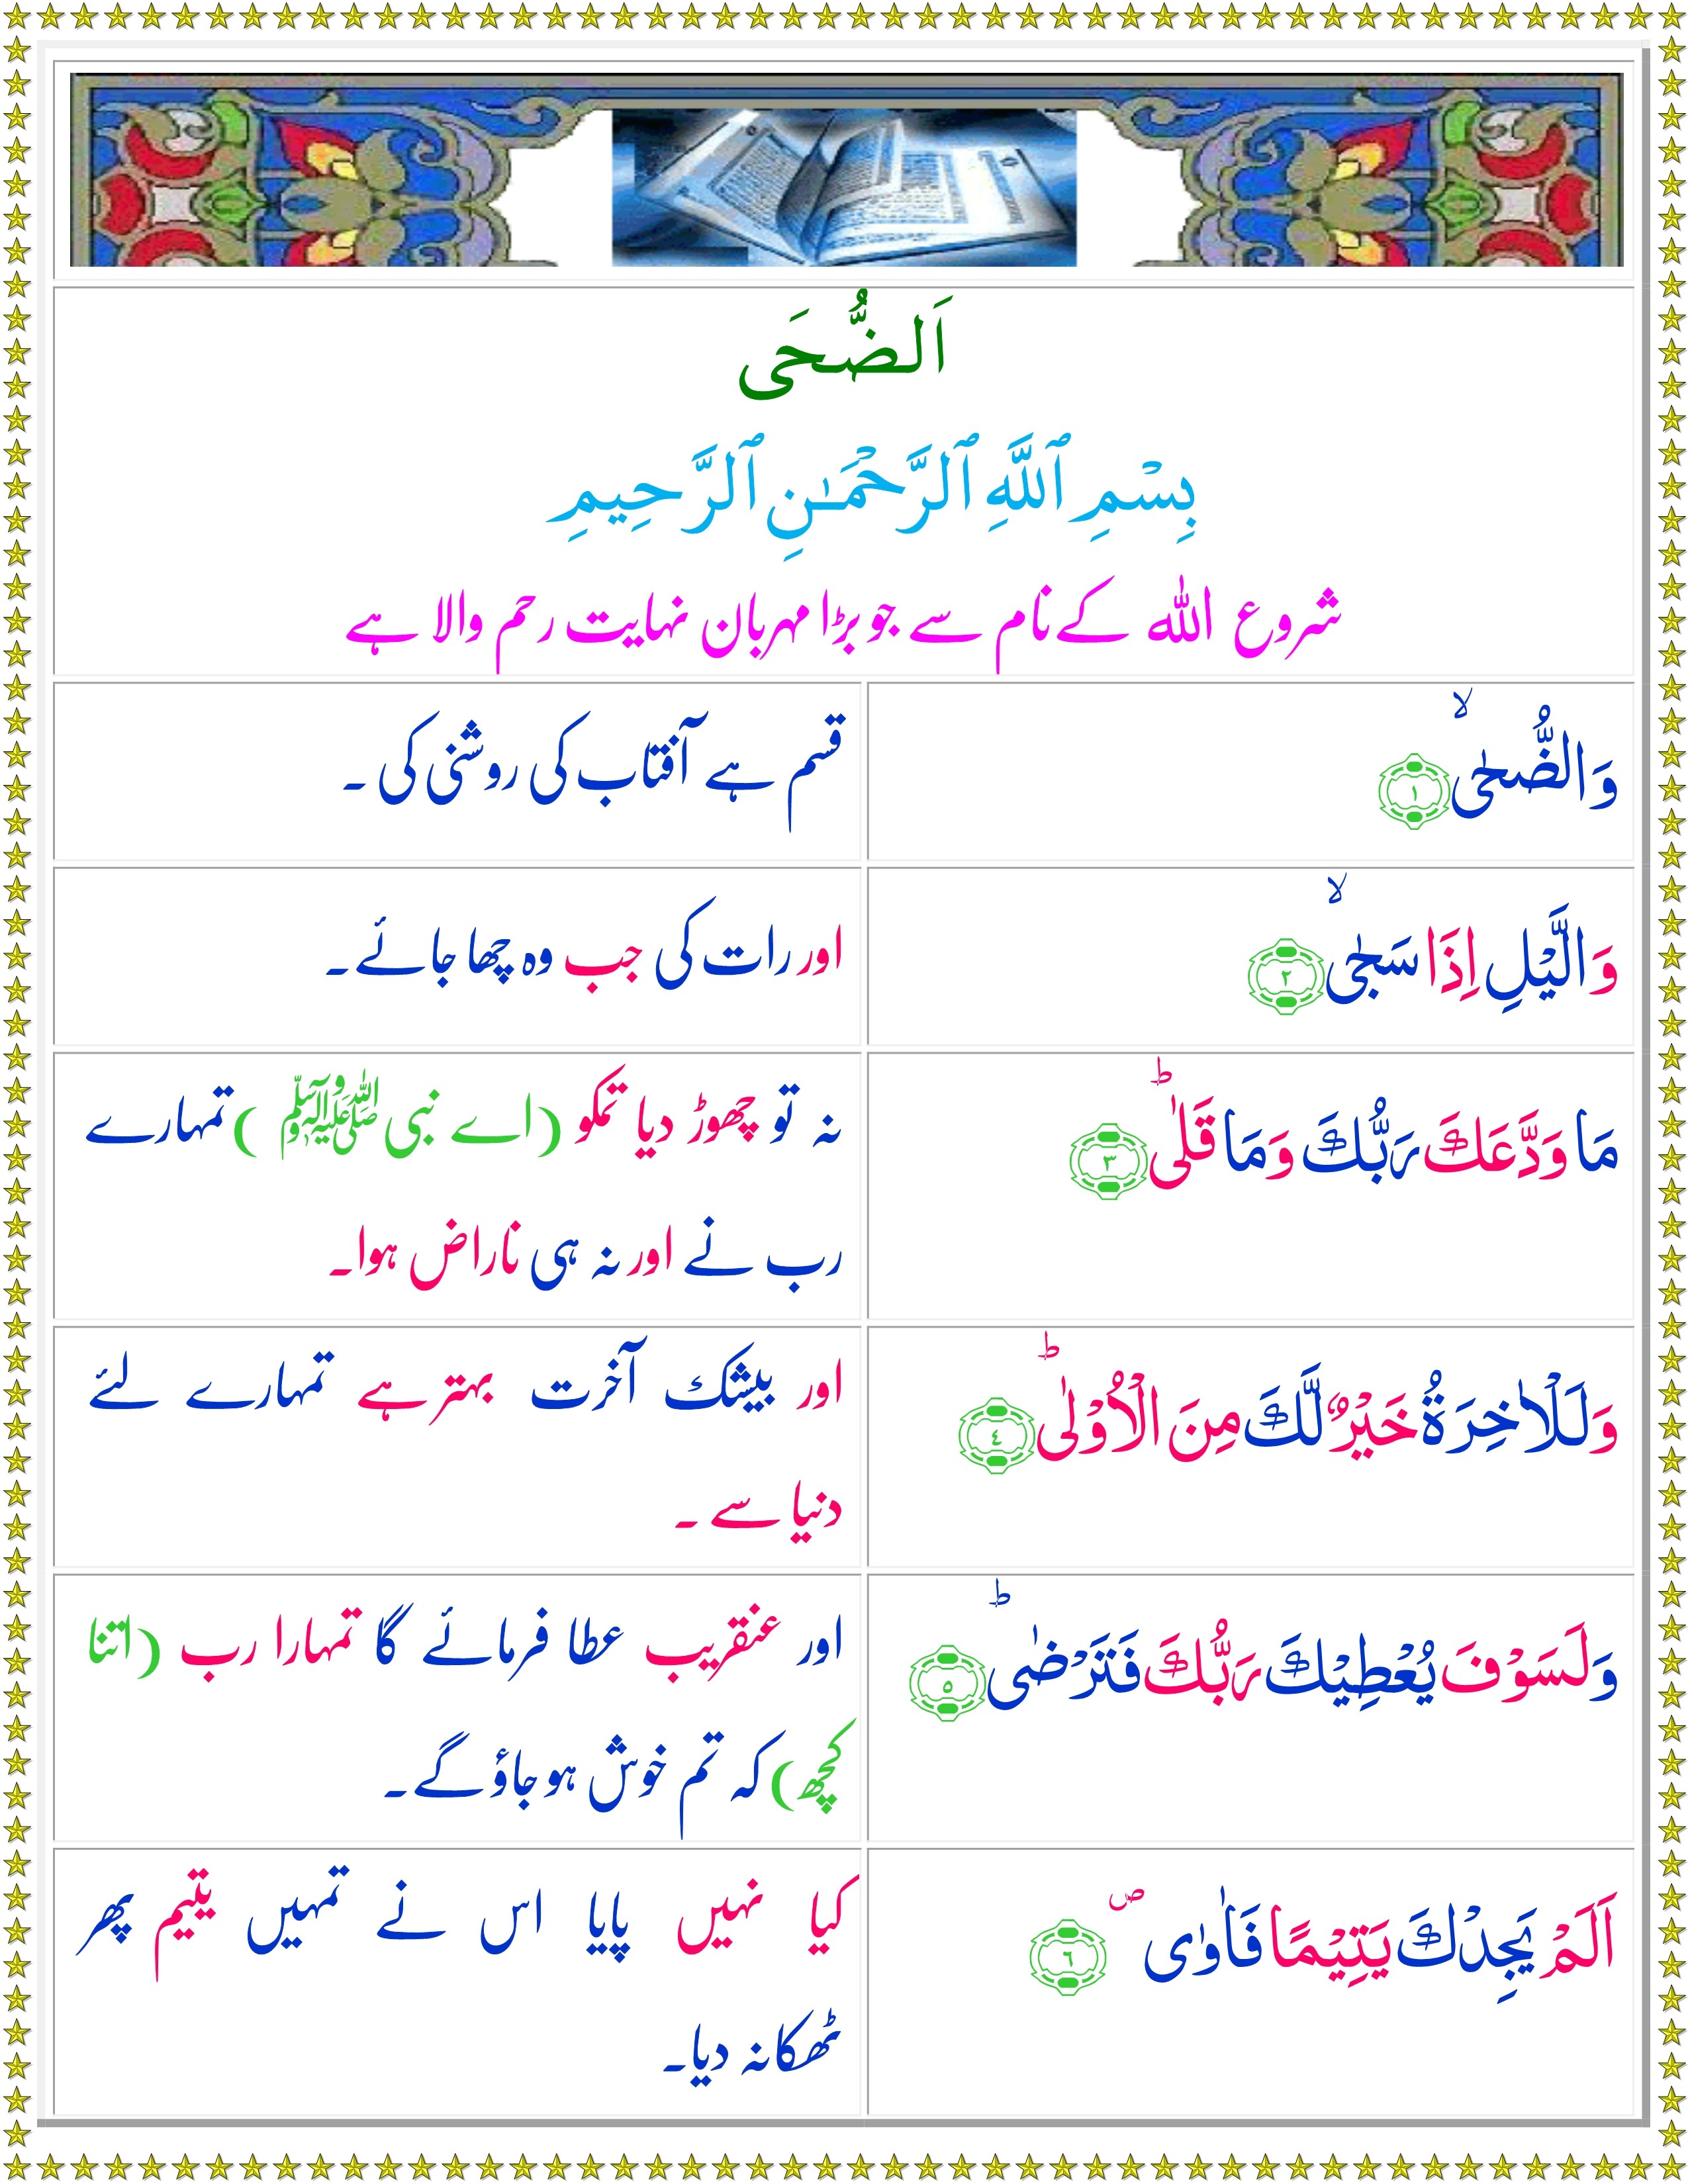 اَلضُّحَى
بِسْمِ ٱللَّهِ ٱلرَّحْمَـٰنِ ٱلرَّحِيمِ
شروع اللہ کے نام سے جو بڑا مہربان نہایت رحم والا ہے
وَالضُّحٰىۙ ﴿١﴾
قسم ہے آفتاب کی روشنی کی ۔
وَالَّيْلِ اِذَا سَجٰىۙ ﴿٢﴾
اور رات کی جب وہ چھا جائے۔
مَا وَدَّعَكَ رَبُّكَ وَمَا قَلٰىؕ ﴿٣﴾
نہ تو چھوڑ دیا تمکو (اے نبی ﷺ ) تمہارے
رب نے اور نہ ہی ناراض ہوا۔
وَلَلْاٰخِرَةُ خَيْرٌ لَّكَ مِنَ الْاُوْلٰىؕ ﴿٤﴾
اور بیشک آخرت بہتر ہے تمہارے لئے
دنیا سے ۔
وَلَسَوْفَ يُعْطِيْكَ رَبُّكَ فَتَرْضٰىؕ ﴿٥﴾
اور عنقریب عطا فرمائے گا تمہارا رب (اتنا
کچھ) کہ تم خوش ہو جاؤ گے۔
اَلَمْ يَجِدْكَ يَتِيْمًا فَاٰوٰى ۖ ﴿٦﴾
کیا نہیں پایا اس نے تمہیں یتیم پھر
ٹھکانہ دیا۔